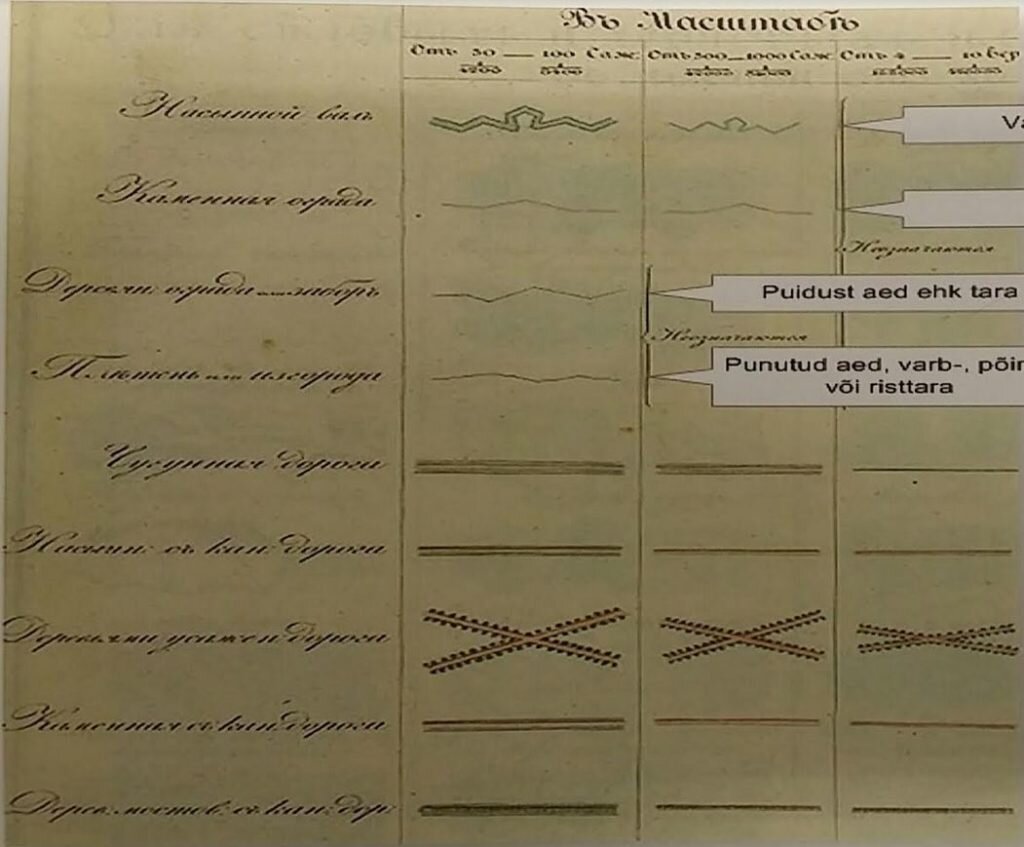 Въ Масштабѣ
Отъ 50 — 100 Саж: Отъ 500 — 1000 Саж: Отъ 4 — 10 вер
4200 8400 42000 84000
Насыпной валъ
Va
Каменная ограда
Неозначаются
Деревян: ограда или заборъ
Puidust aed ehk tara
Неозначаются
Плетень или изгорода
Punutud aed, varb-, põin
või risttara
Чугунная дорога
Насыпн: съ кан: дорога
Деревьями усажен: дорога
Каменная съ кан: дорога
Дерев: мостов: съ кан: дор: